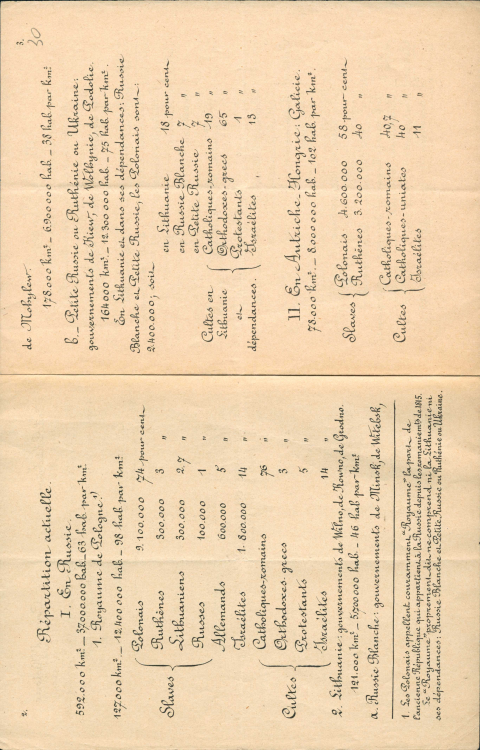 2.
Répartition actuelle
I. En Russie.
592.000 km² – 37.000.000 hab. – 63 hab. par km².
1. Royaume de Pologne.¹)
127.000 km² – 12.400.000 hab. – 98 hab. par km².
Slaves { Polonais 9.100.000 74 pour cent
Ruthènes 300.000 3 „
Lithuaniens 300.000 2,7 „
Russes 100.000 1 „
Allemands 600.000 5 „
Israélites 1.800.000 14 „
Cultes { Catholiques-romains 76 „
Orthodoxes-grecs 3 „
Protestants 5 „
Israélites 14 „
2. Lithuanie: gouvernements de Wilno, de Kowno, de Grodno.
121.000 km² – 5.700.000 hab. – 46 hab. par km².
a. Russie Blanche: gouvernements de Minsk, de Witebsk,
1. Les Polonais appellent couramment "Royaume" la part de
l'ancienne République qui appartient à la Russie depuis les remaniements de 1815.
Le "Royaume" proprement dit ne comprend ni la Lithuanie ni
ses dépendances: Russie Blanche et Petite Russie ou Ruthénie ou Ukraine.
3.
30
de Mohylew
178.000 km² – 6.900.000 hab. – 38 hab. par km².
b. – Petite Russie ou Ruthénie ou Ukraine:
gouvernements de Kiew, de Wolhynie, de Podolie.
164.000 km² – 12.300.000 hab. – 75 hab. par km².
En Lithuanie et dans ses dépendances: Russie
Blanche et Petite Russie, les Polonais sont:
2.400.000; soit
en Lithuanie 18 pour cent
en Russie Blanche 7 „
en Petite Russie 7 „
Cultes en Lithuanie et dépendances. { Catholiques-romains 19 „
Orthodoxes-grecs 65 „
Protestants 1 „
Israélites 13 „
II. En Autriche-Hongrie: Galicie.
78.000 km² – 8.000.000 hab. – 102 hab. par km².
Slaves { Polonais 4.600.000 58 pour cent
Ruthènes 3.200.000 40 „
Cultes { Catholiques-romains 46,7 „
Catholiques-uniates 40 „
Israélites 11 „